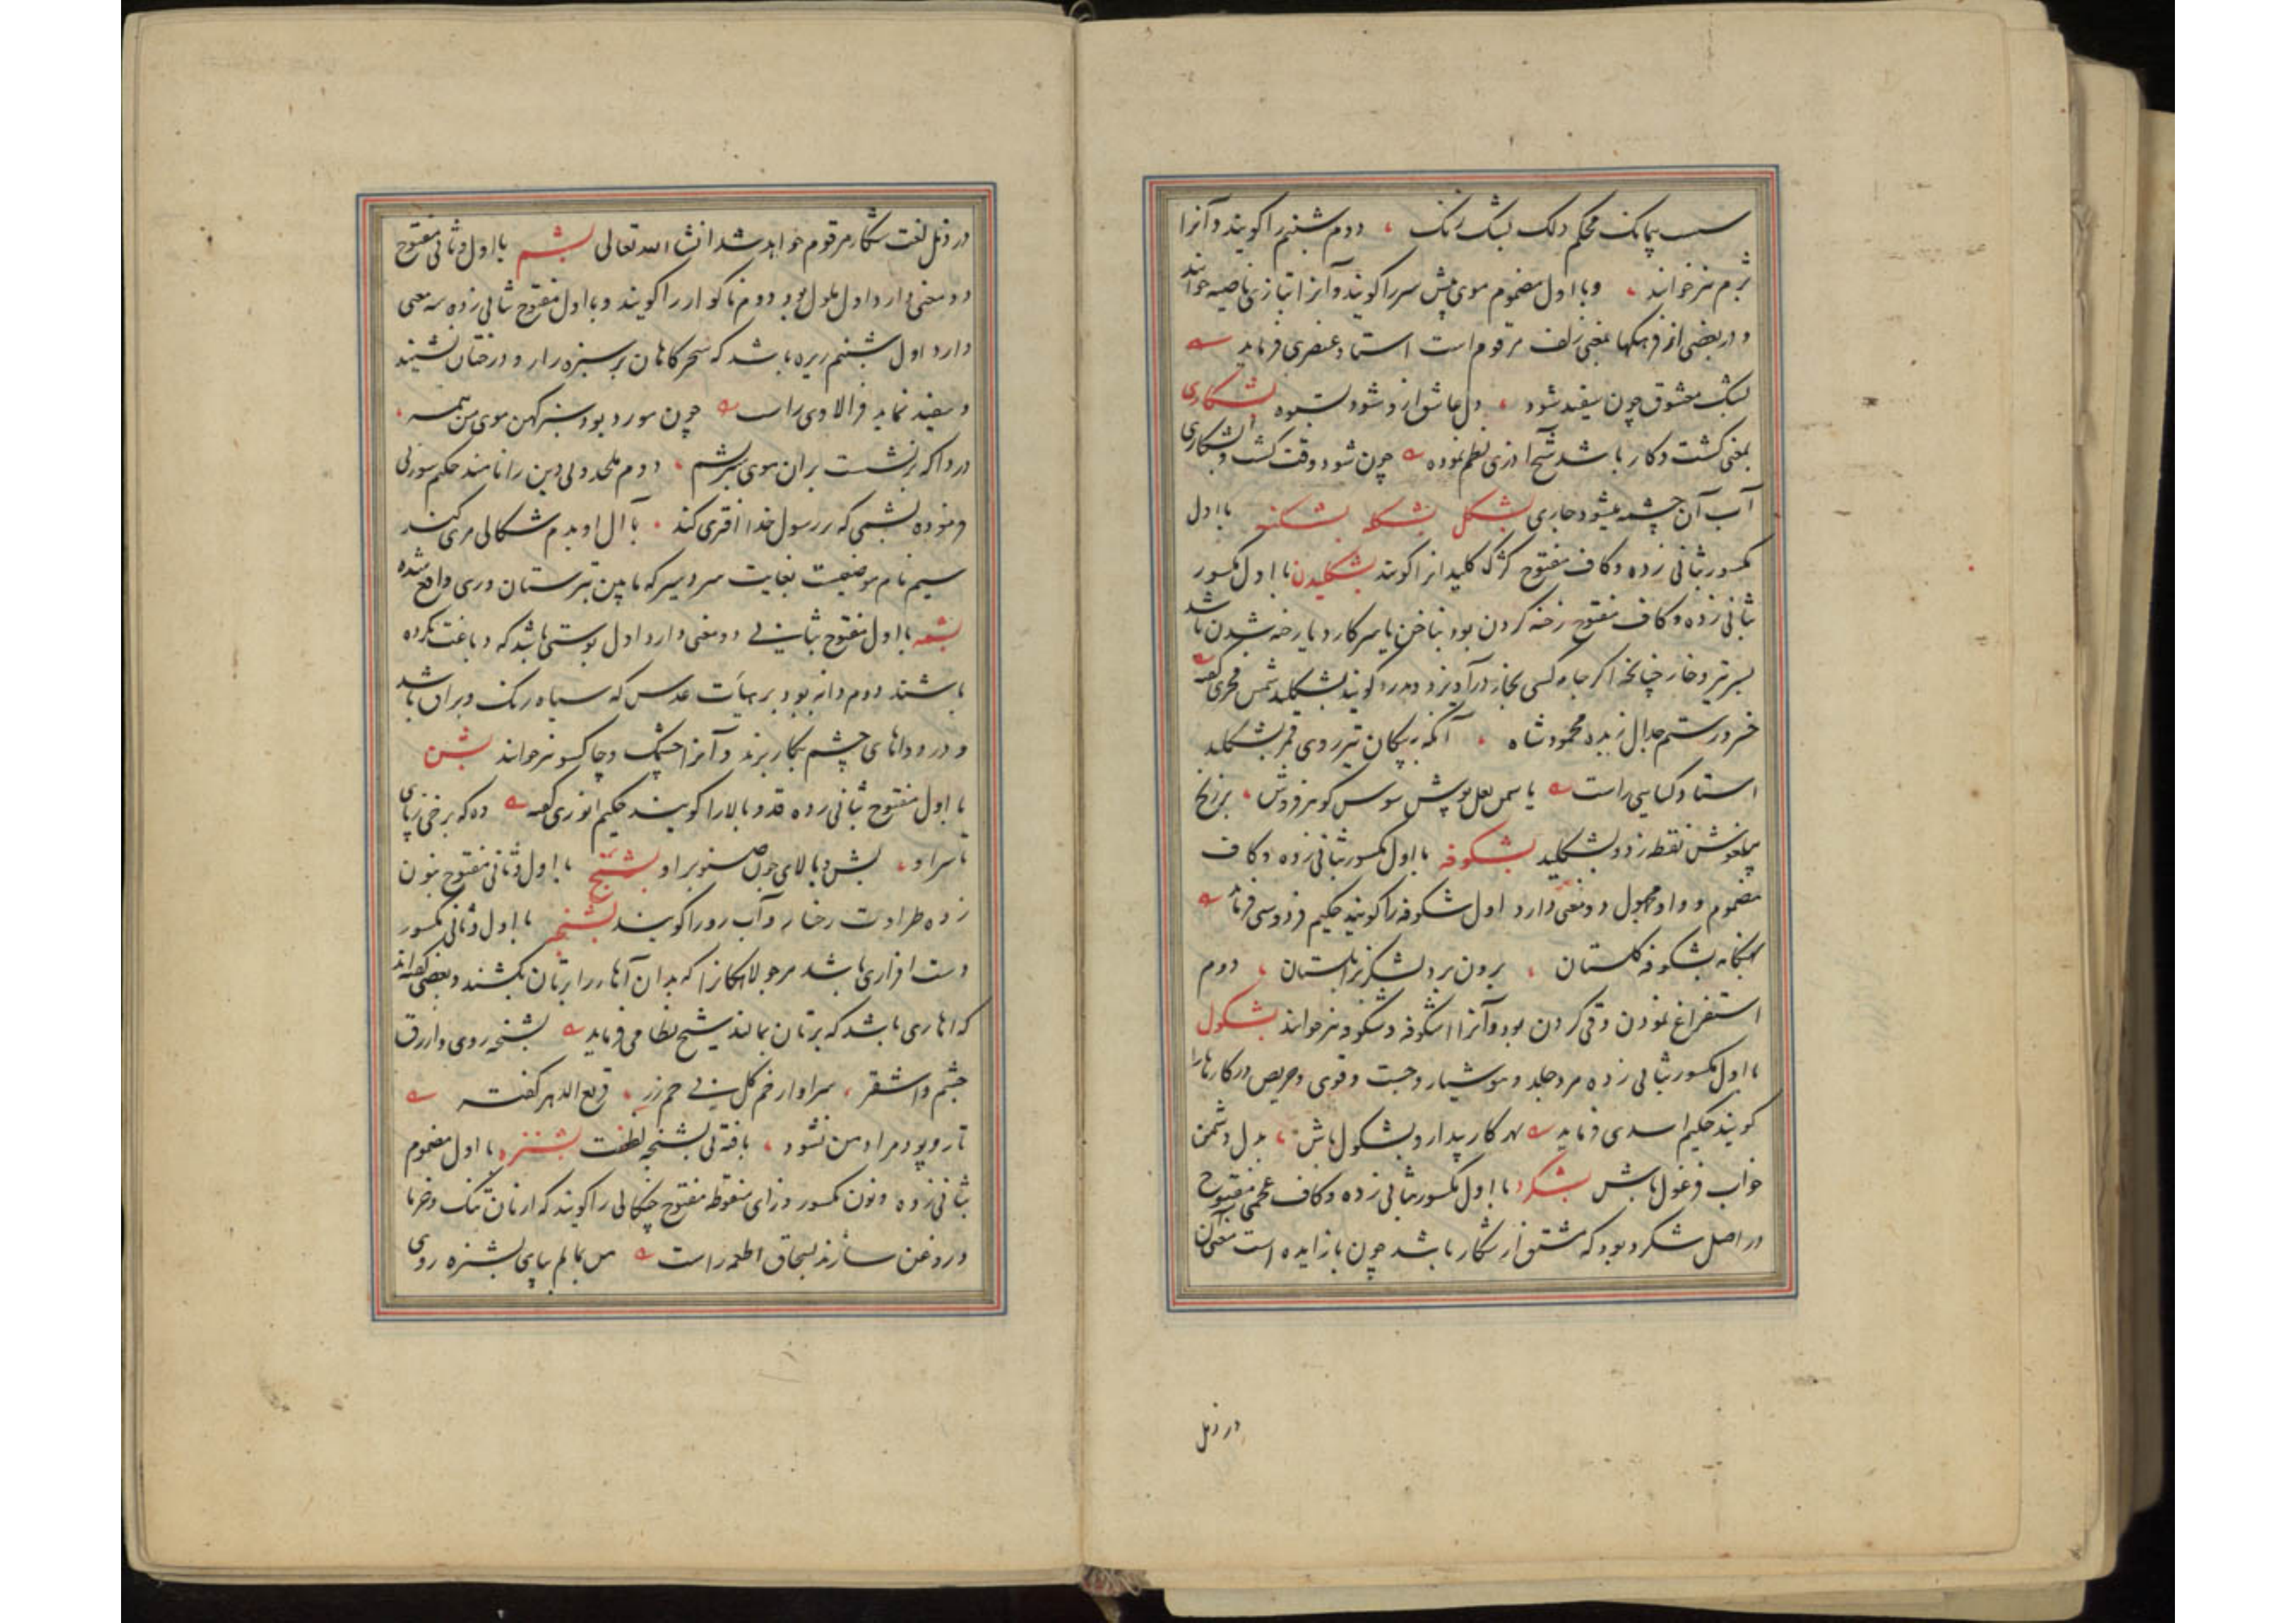 سست پیمانک محکم دلک بشک زنک ، دوم شبنم را کویند و آنرا
بژم نیز خوانند ، وبا اول مضموم موی پیش سر را کویند و آنرا بتازی ناصیه خوانند
و در بعضی از فرهنکها بمعنی زلف مرقوم است استاد عنصری فرماید
بشک معشوق چون سفید شود ، دل عاشق ازو شود بستوه بشکاری
بمعنی کشت و کار باشد شیخ آذری نظم نموده چون شود وقت کشت و بشکاری
آب آن چشمه میشود جاری بشکل بشکله بشکنه با اول
مکسور بثانی زده و کاف مفتوح کژک کلیدانرا کویند بشکلیدن با اول مکسور
ثانی زده و کاف مفتوح رخنه کردن بود بناخن یا سر کارد یا رخنه شدن باشد
بسر تیر و خار چنانچه اکر جامه کسی بخار درآویزد و بدرد کویند بشکلید شمس فخری کفته
خسرو رستم جدال زبده محمود شاه ، آنکه به پیکان تیر روی قمر بشکلید
استاد کسایی راست یاسمن لعل پوش سوسن کوهر فروش ، بر زنخ
پیلغوش نقطه زد و بشکلید بشکوفه با اول مکسور بثانی زده و کاف
مضموم و واو مجهول دو معنی دارد اول شکوفه را کویند حکیم فردوسی فرماید
بهنکام بشکوفه کلستان ، برون برد لشکر ز زابلستان ، دوم
استفراغ نمودن و قی کردن بود و آنرا اشکوفه و شکوفه نیز خوانند بشکول
با اول مکسور بثانی زده مرد جلد و هوشیار و چست و قوی و حریص در کارها را
کویند حکیم اسدی فرماید بهر کار بیدار و بشکول باش ، بدل دشمن
خواب فرغول باش بشکرد با اول مکسور بثانی زده و کاف عجمی مفتوح
در اصل شکرد بود که مشتق از شکار باشد چون با زایده است معنی آن
در ذیل
در ذیل لغت شکار مرقوم خواهد شد انشاء الله تعالی بشم با اول و ثانی مفتوح
دو معنی دارد اول ملول بود دوم ناکوار را کویند و با اول مفتوح ثانی زده سه معنی
دارد اول شبنم ریزه باشد که سحرکاهان بر سبزه زار و درختان نشیند
و سفید نماید فرالاوی راست چون مورد بود سبز کهن موی من همه ،
دردا که بر نشست بران موی سبز بشم ، دوم ملحد و بی دین را نامند حکیم سوزنی
فرموده بشمی که بر رسول خدا افتری کند ، با آل او بدم شکالی مری کند
سیم نام موضعیست بغایت سردسیر که مابین تبرستان و ری واقع شده
بشمه با اول مفتوح بثانی دو معنی دارد اول پوستی باشد که دباغت نکرده
باشند دوم دانه بود بر هیأت عدس که سیاه رنک و براق باشد
و در دواهای چشم بکار برند و آنرا چشمک و چاکسو نیز خوانند بشن
با اول مفتوح بثانی زده قد و بالا را کویند حکیم انوری کفته ده که برخی ز پای
تا سر او ، بشن و بالای چون صنوبر او بشنج با اول و ثانی مفتوح بنون
زده طراوت رخسار و آب رو را کویند بشنجه با اول و ثانی مکسور
دست افزاری باشد مر جولاهکانرا که بدان آهار را بر تان بکشند و بعضی کفته اند
که اهاری باشد که بر تان بمالند شیخ نظامی فرماید بشنجه روی و ازرق
چشم و اشقر ،
تار و پود مراد من نشود ، بافته بی بشنجه لطفت بشنزه با اول مضموم
بثانی زده و نون مکسور و زای منقوطه مفتوح چنکالی را کویند که از نان تنک و خرما
و روغن سازند بسحاق اطعمه راست من بمالم بپای بشنزه روی